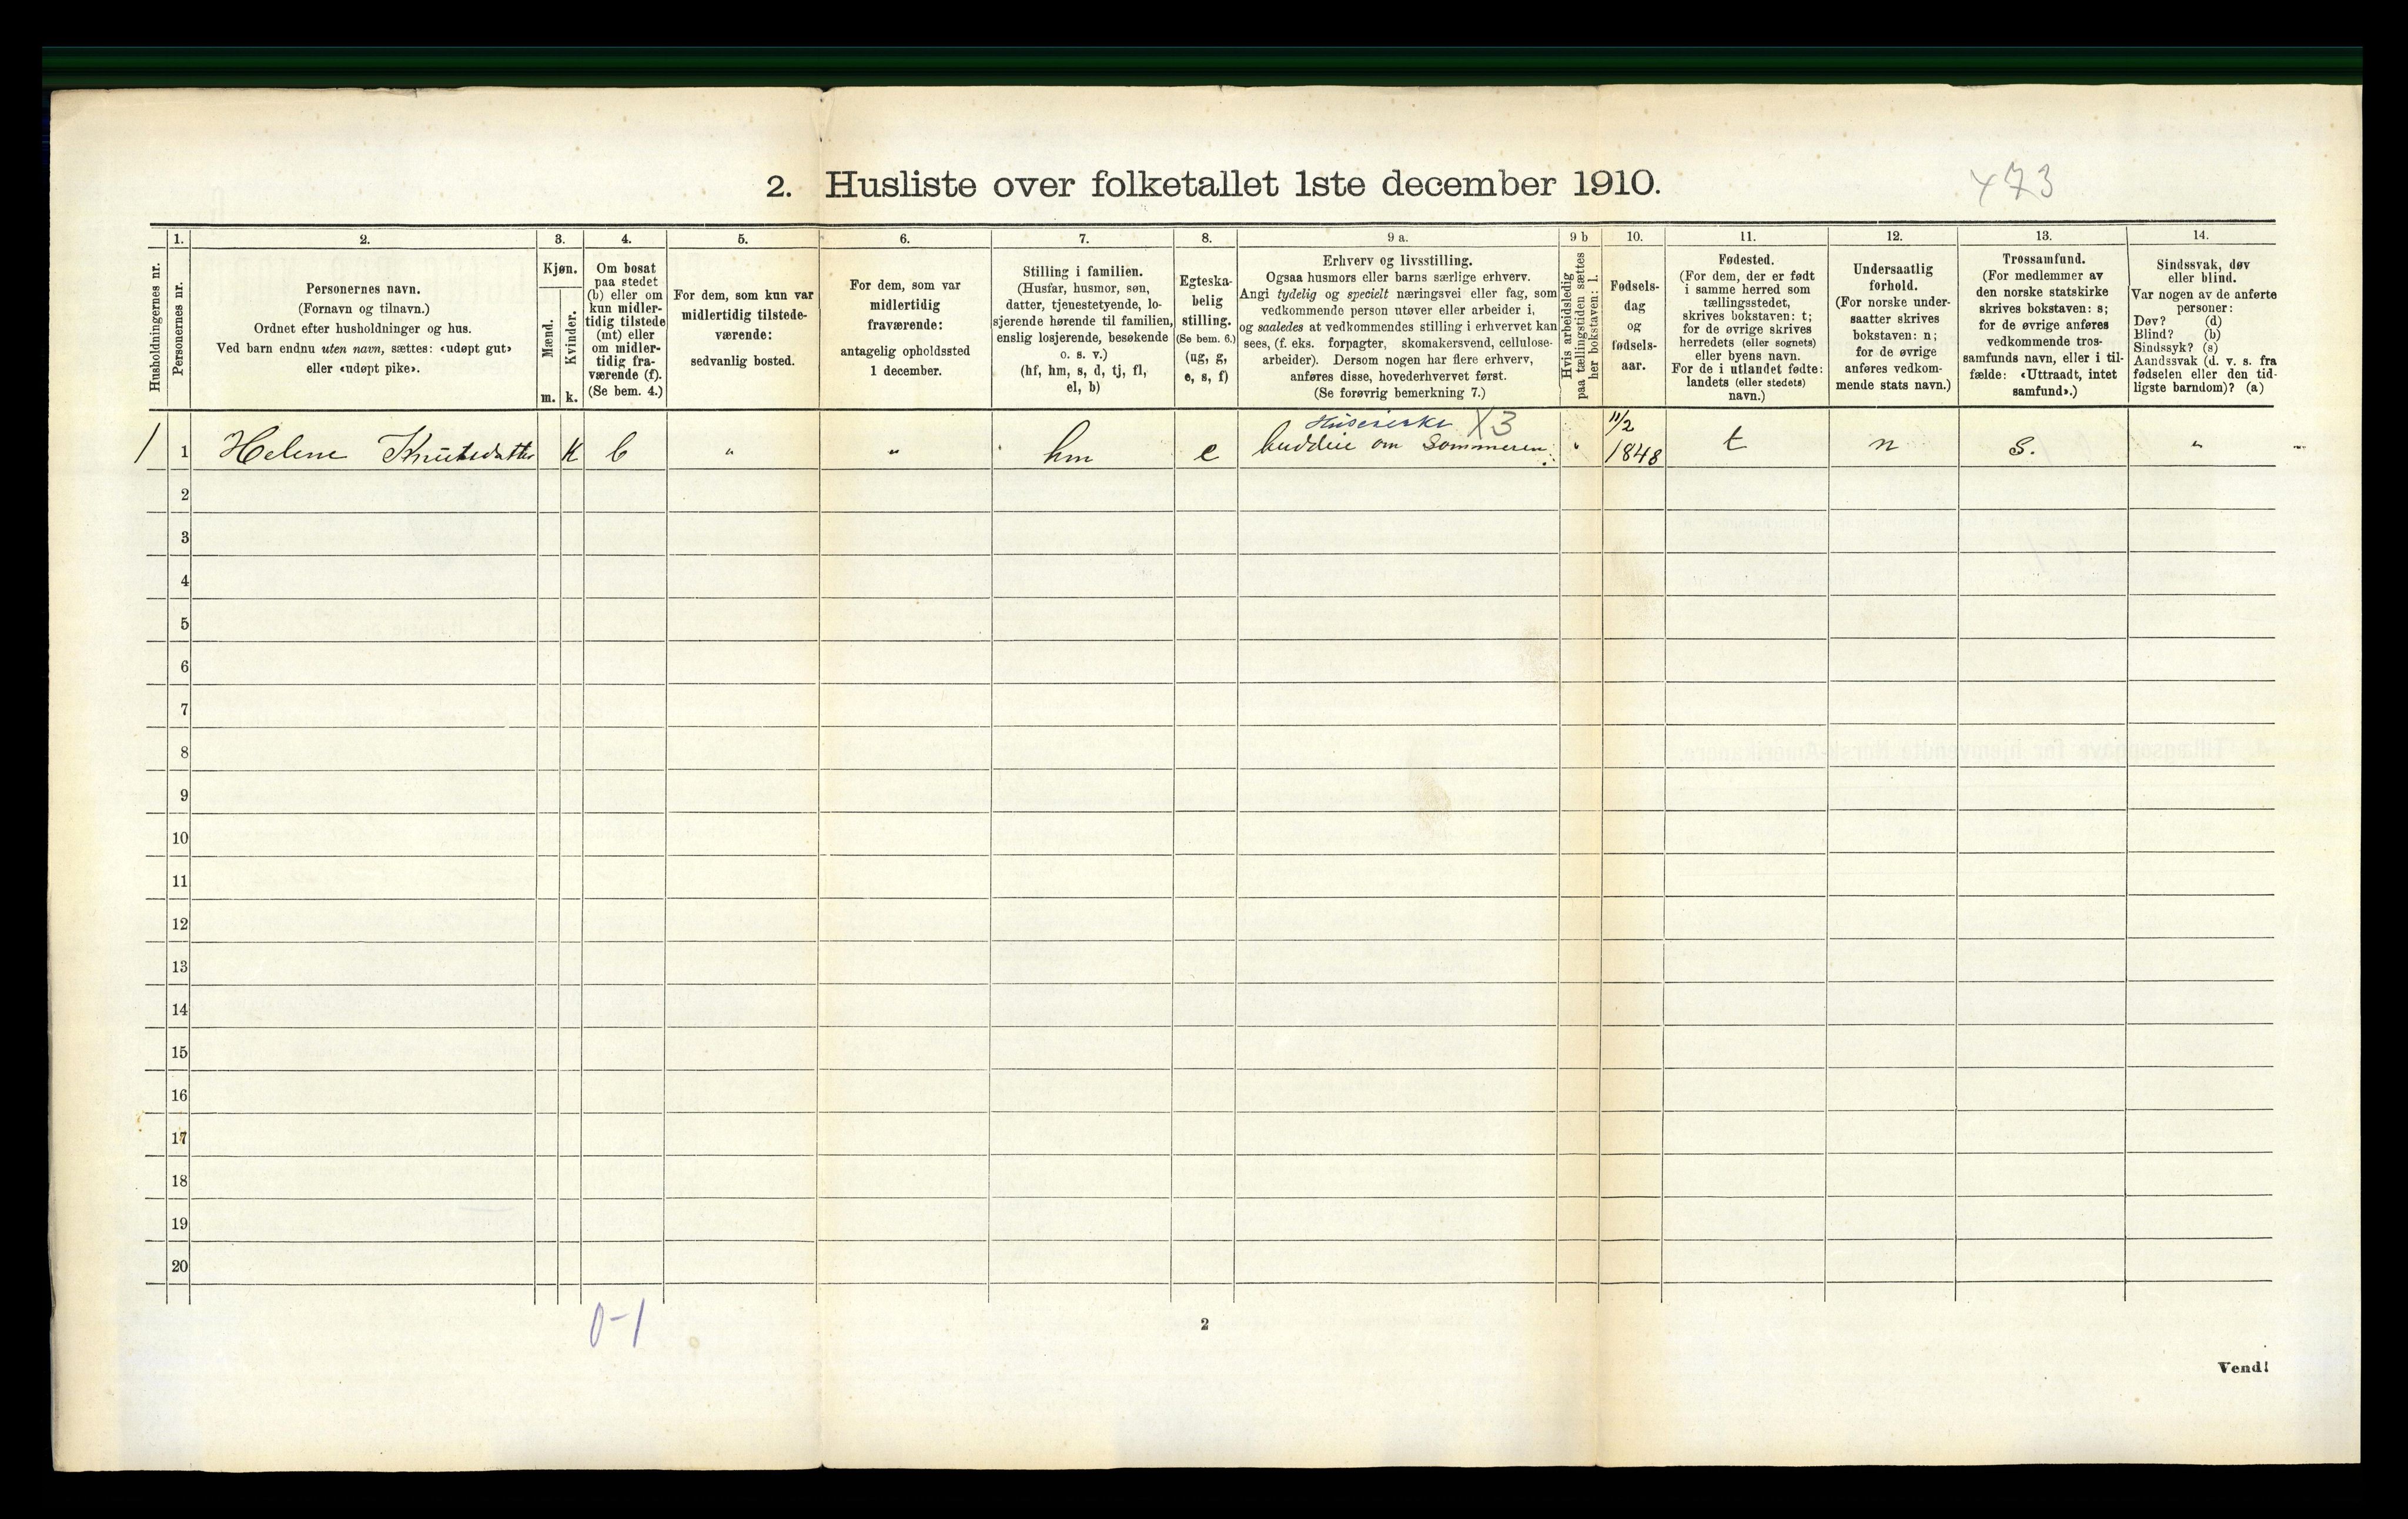 2. Husliste over folketallet 1ste december 1910.
473
Husholdningernes nr.
1.
Personernes nr.
2.
Personernes navn.
(Fornavn og tilnavn.)
Ordnet efter husholdninger og hus.
Ved barn endnu uten navn, sættes: «udøpt gut»
eller «udøpt pike».
3.
Kjøn.
Mænd.
m.
Kvinder.
k.
4.
Om bosat
paa stedet
(b) eller om
kun midler-
tidig tilstede
(mt) eller
om midler-
tidig fra-
værende (f).
(Se bem. 4.)
5.
For dem, som kun var
midlertidig tilstede-
værende:
sedvanlig bosted.
6.
For dem, som var
midlertidig
fraværende:
antagelig opholdssted
1 december.
7.
Stilling i familien.
(Husfar, husmor, søn,
datter, tjenestetyende, lo-
sjerende hørende til familien,
enslig losjerende, besøkende
o. s. v.)
(hf, hm, s, d, tj, fl,
el, b)
8.
Egteska-
belig
stilling.
(Se bem. 6.)
(ug, g,
e, s, f)
9 a.
Erhverv og livsstilling.
Ogsaa husmors eller barns særlige erhverv.
Angi tydelig og specielt næringsvei eller fag, som
vedkommende person utøver eller arbeider i,
og saaledes at vedkommendes stilling i erhvervet kan
sees, (f. eks. forpagter, skomakersvend, cellulose-
arbeider). Dersom nogen har flere erhverv,
anføres disse, hovederhvervet først.
(Se forøvrig bemerkning 7.)
9 b
Hvis arbeidsledig
paa tællingstiden sættes
her bokstaven: l.
10.
Fødsels-
dag
og
fødsels-
aar.
11.
Fødested.
(For dem, der er født
i samme herred som
tællingsstedet,
skrives bokstaven: t;
for de øvrige skrives
herredets (eller sognets)
eller byens navn.
For de i utlandet fødte:
landets (eller stedets)
navn.)
12.
Undersaatlig
forhold.
(For norske under-
saatter skrives
bokstaven: n;
for de øvrige
anføres vedkom-
mende stats navn.)
13.
Trossamfund.
(For medlemmer av
den norske statskirke
skrives bokstaven: s;
for de øvrige anføres
vedkommende tros-
samfunds navn, eller i til-
fælde: «Uttraadt, intet
samfund».)
14.
Sindssvak, døv
eller blind.
Var nogen av de anførte
personer:
Døv? (d)
Blind? (b)
Sindssyk? (s)
Aandssvak (d. v. s. fra
fødselen eller den tid-
ligste barndom)? (a)
X3 11/2
1 1 Helene Knutsdatter K b " " hm e buddeie om Sommeren " 1848 t n s. "
2
3
4
5
6
7
8
9
10
11
12
13
14
15
16
17
18
19
20
0-1
2
Vend!